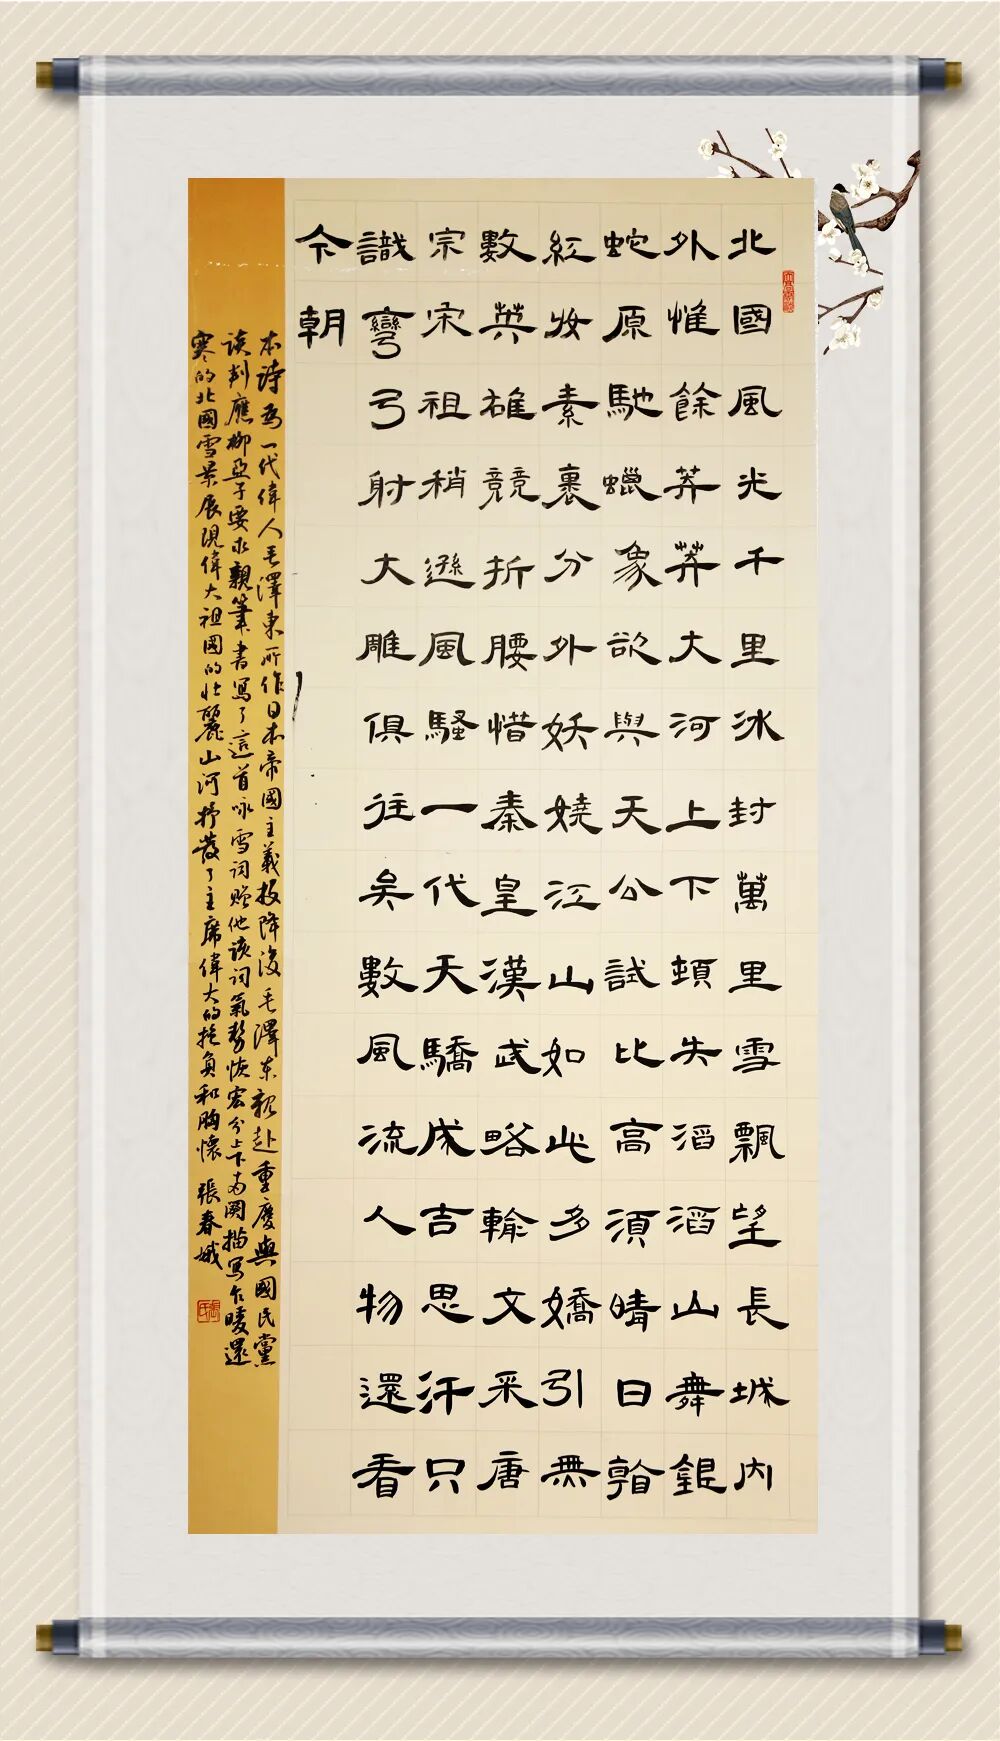 北國風光千里冰封萬里雪飄望長城内
外惟餘莽莽大河上下頓失滔滔山舞銀
蛇原馳蠟象欲與天公試比高須晴日
紅妝素裹分外妖嬈江山如此多嬌引無
數英雄競折腰惜秦皇漢武略輸文采唐
宗宋祖稍遜風騷一代天驕成吉思汗只
識彎弓射大雕俱往矣數風流人物還看
今朝
本詩為一代偉人毛澤東所作日本帝國主義投降後毛澤東親赴重慶與國民黨
談判應柳亞子要求親筆書寫了這首咏雪词贈他該词氣勢恢宏分上下两闕描寫乍暖還
寒的北國雪景展現偉大祖國的壯麗山河抒發了主席偉大的抱負和胸懷 張春娥